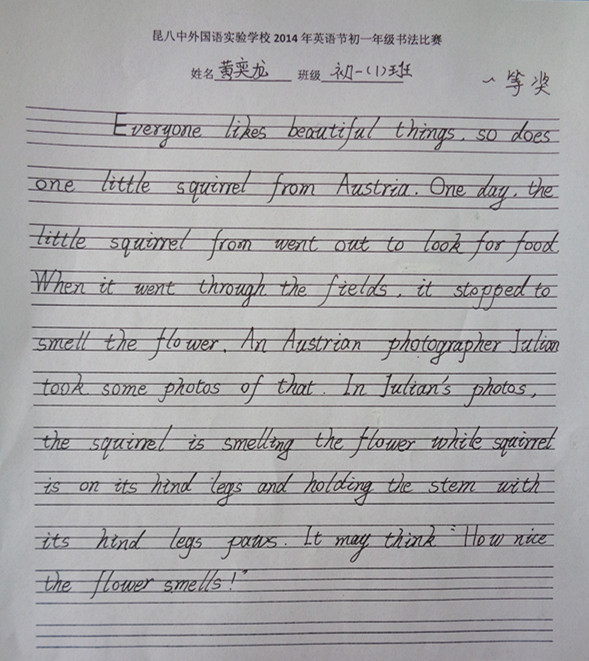 昆八中外国语实验学校 2014 年英语节初一年级书法比赛
姓名 黄奕龙 班级 初一(1)班
一等奖
Everyone likes beautiful things, so does
one little squirrel from Austria. One day, the
little squirrel from went out to look for food.
When it went through the fields, it stopped to
smell the flower. An Austrian photographer Julian
took some photos of that. In Julian's photos,
the squirrel is smelling the flower while squirrel
is on its hind legs and holding the stem with
its hind legs paws. It may think "How nice
the flower smells!"